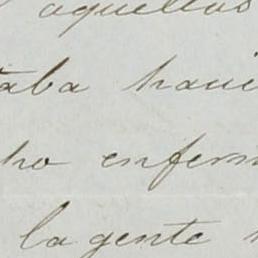 aquellos
taba haci
ho enferm
la gente